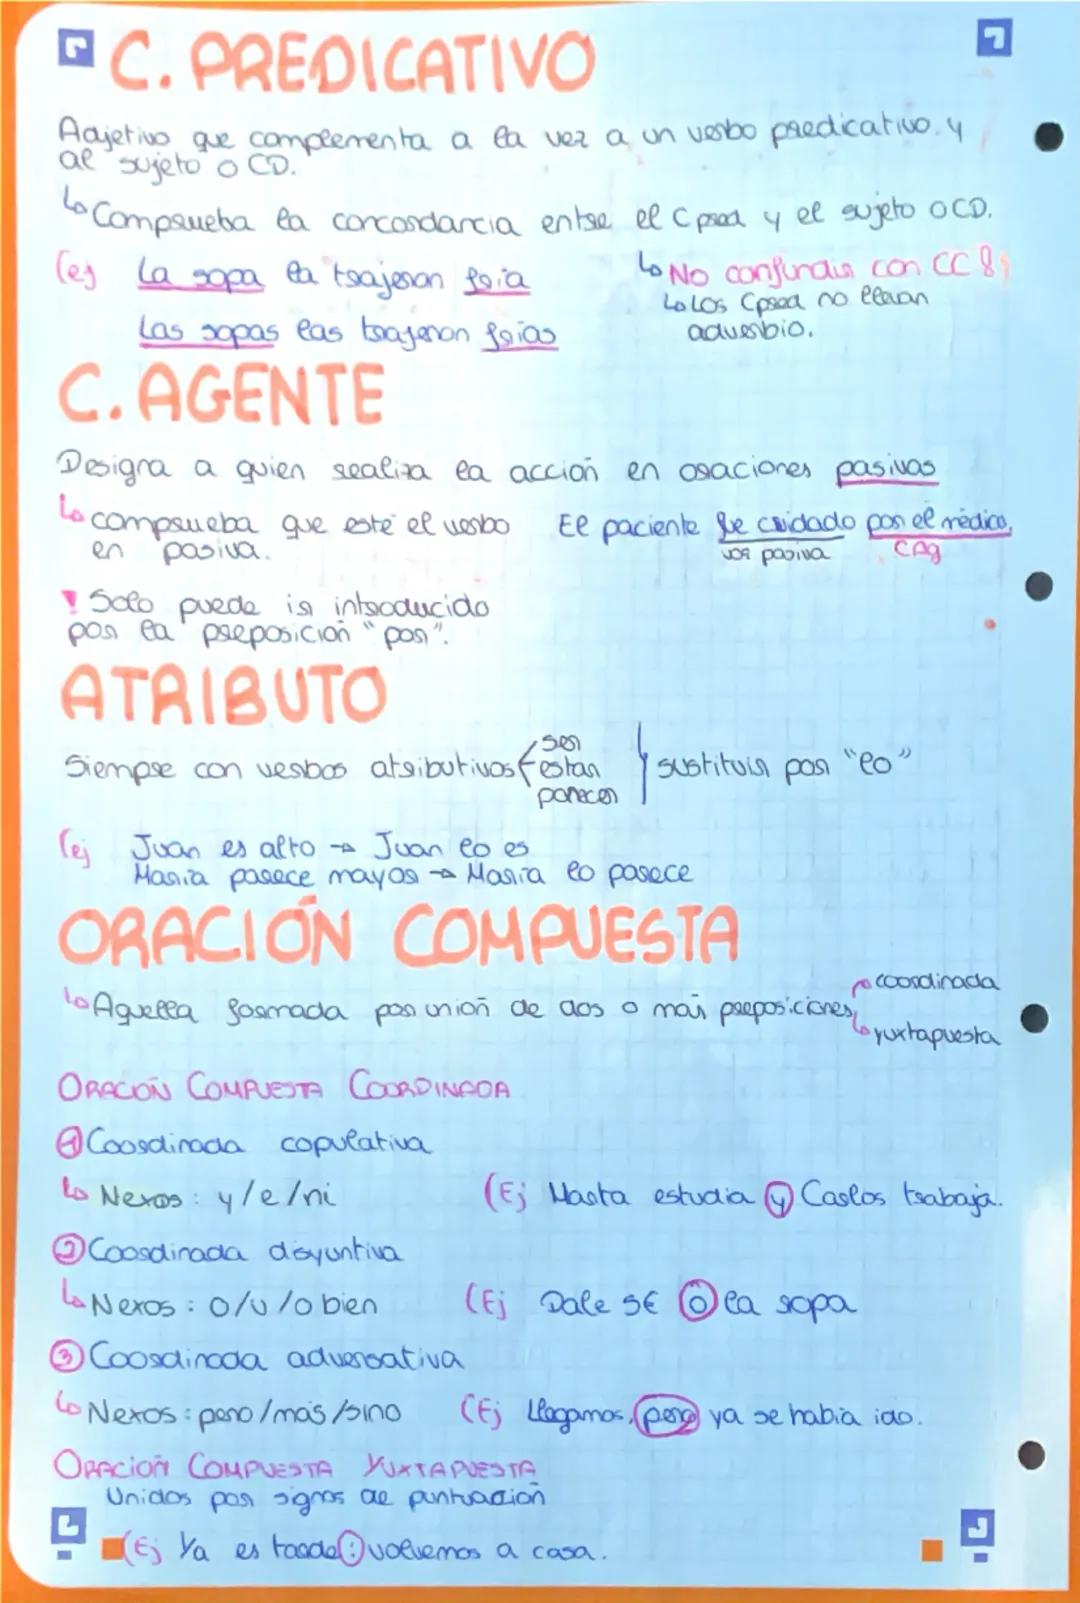 C. PREDICATIVO
Adjetivo que complementa a la vez a un verbo predicativo y
al sujeto o CD.
Comprueba la concordancia entre el C pred y el sujeto o CD.
(ej La sopa la trajeron fría
No confundir con CC
Los Cpred no llevan
adverbio.
Las sopas las trajeron frías
C. AGENTE
Designa a quien realiza la acción en oraciones pasivas
comprueba que esté el verbo
en pasiva.
El paciente fue cuidado por el médico,
voz pasiva
CAg
! Solo puede ir introducido
por la preposición "por".
ATRIBUTO
Siempre con verbos atributivos
ser
estar
parecer
sustituir por "lo"
(ej Juan es alto → Juan lo es
María parece mayor → María lo parece
ORACIÓN COMPUESTA
Aquella formada por unión de dos o más preposiciones,
coordinada
yuxtapuesta
ORACIÓN COMPUESTA COORDINADA
① Coordinada copulativa
Nexos: y/e/ni
(Ej Marta estudia y Carlos trabaja.
② Coordinada disyuntiva
Nexos: o/u/o bien
(Ej Dale 5€ o la sopa
③ Coordinada adversativa
Nexos: pero/mas/sino
(Ej Llegamos, pero ya se había ido.
ORACIÓN COMPUESTA YUXTAPUESTA
Unidos por signos de puntuación
(Ej Ya es tarde: volvemos a casa.